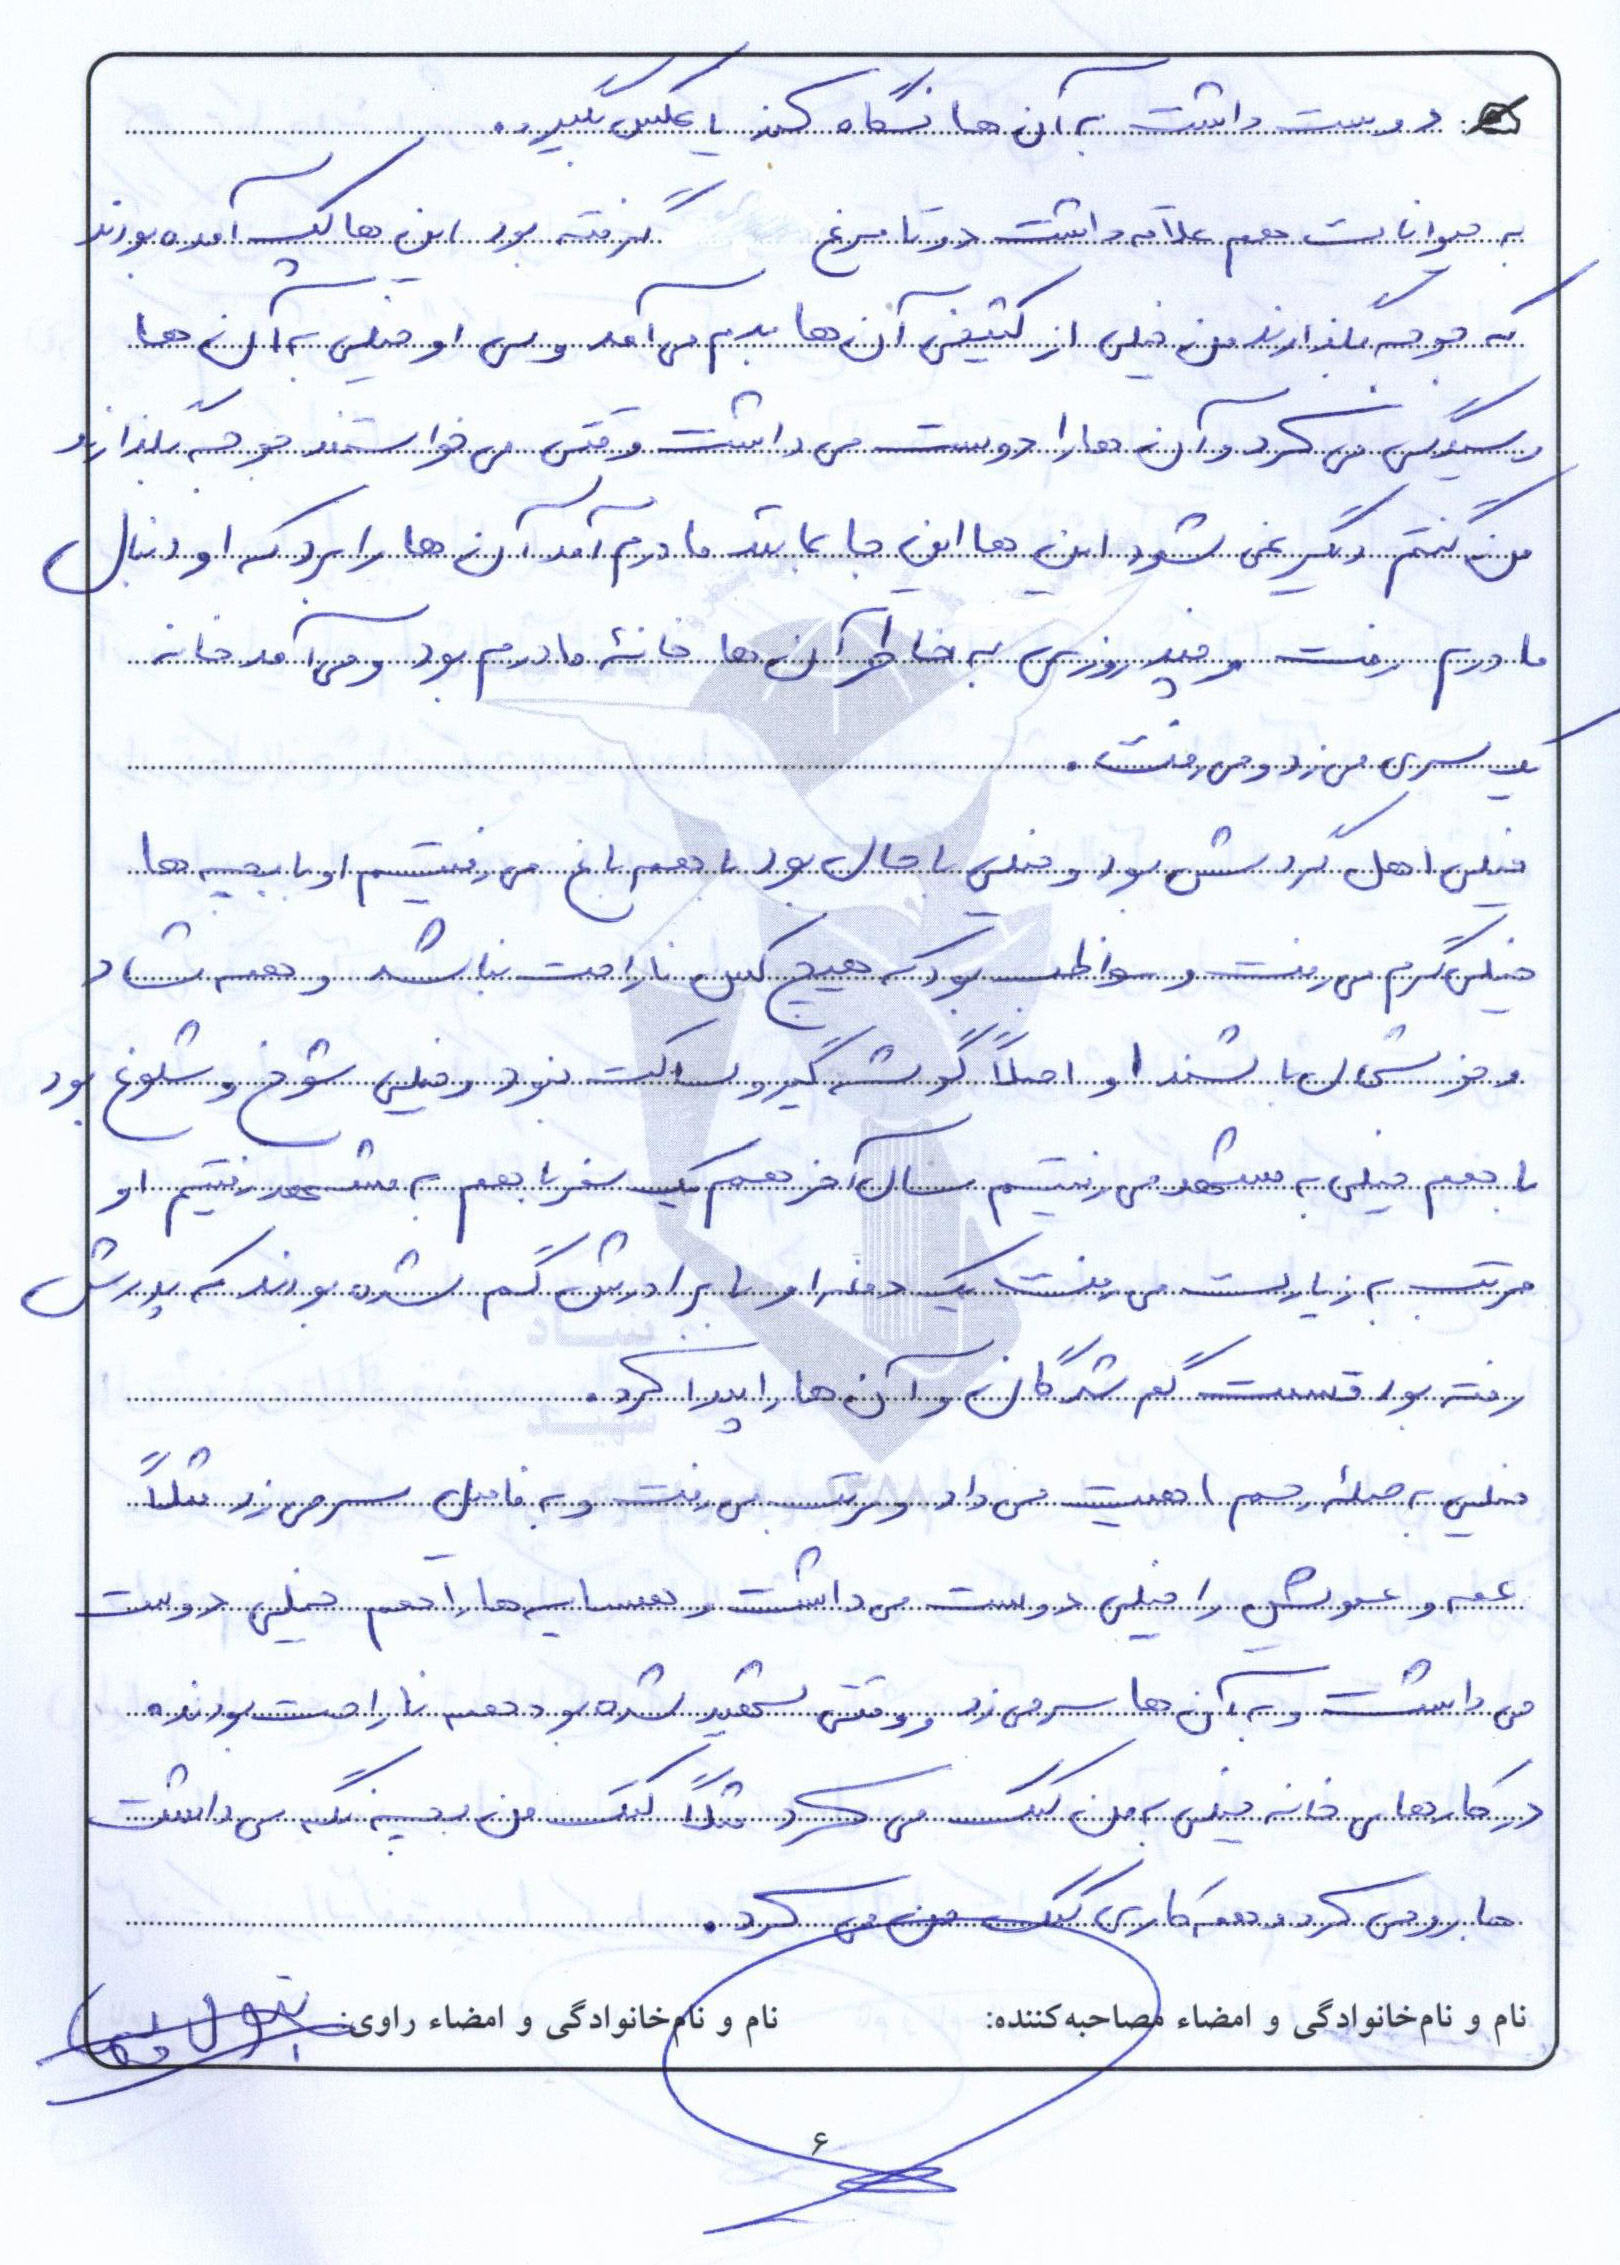 دوست داشت به آن ها نگاه کند یا عکس بگیرد.
به حیوانات هم علاقه داشت دو تا مرغ گرفته بود این ها کپ آمده بودند
که جوجه بگذارند من خیلی از کثیفی آن ها بدم می آمد ولی او خیلی به آن ها
رسیدگی می کرد و آن ها را دوست می داشت وقتی می خواستند جوجه بگذارند
من گفتم دیگر نمی شود این ها این جا بمانند مادرم آمد آن ها را برد که او دنبال
مادرم رفت و چند روزی به خاطر آن ها خانهٔ مادرم بود و می آمد خانه
یک سری می زد و می رفت.
خیلی اهل گردش بود و خیلی با حال بود با هم باغ می رفتیم او با بچه ها
خیلی گرم می رفت و مواظب بود که هیچ کس ناراحت نباشد و همه شاد
و خوشحال باشند او اصلاً گوشه گیر و ساکت نبود و خیلی شوخ و شلوغ بود
با هم خیلی به مشهد می رفتیم سال آخر هم یک سفر با هم به مشهد رفتیم او
مرتب به زیارت می رفت یک دفعه او با برادرش گم شده بودند که پدرش
رفته بود قسمت گم شدگان و آن ها را پیدا کرد.
خیلی به صلهٔ رحم اهمیت می داد و مرتب می رفت و به فامیل سر می زد مثلاً
عمه و عمویش را خیلی دوست می داشت و همسایه ها را هم خیلی دوست
می داشت و به آن ها سر می زد و وقتی شهید شده بود همه ناراحت بودند.
در کارهای خانه خیلی به من کمک می کرد مثلاً کمک من بچه نگه می داشت
جارو می کرد و همه کاری کمک من می کرد.
نام و نام‌خانوادگی و امضاء مصاحبه‌کننده: نام و نام‌خانوادگی و امضاء راوی: بتول
۶